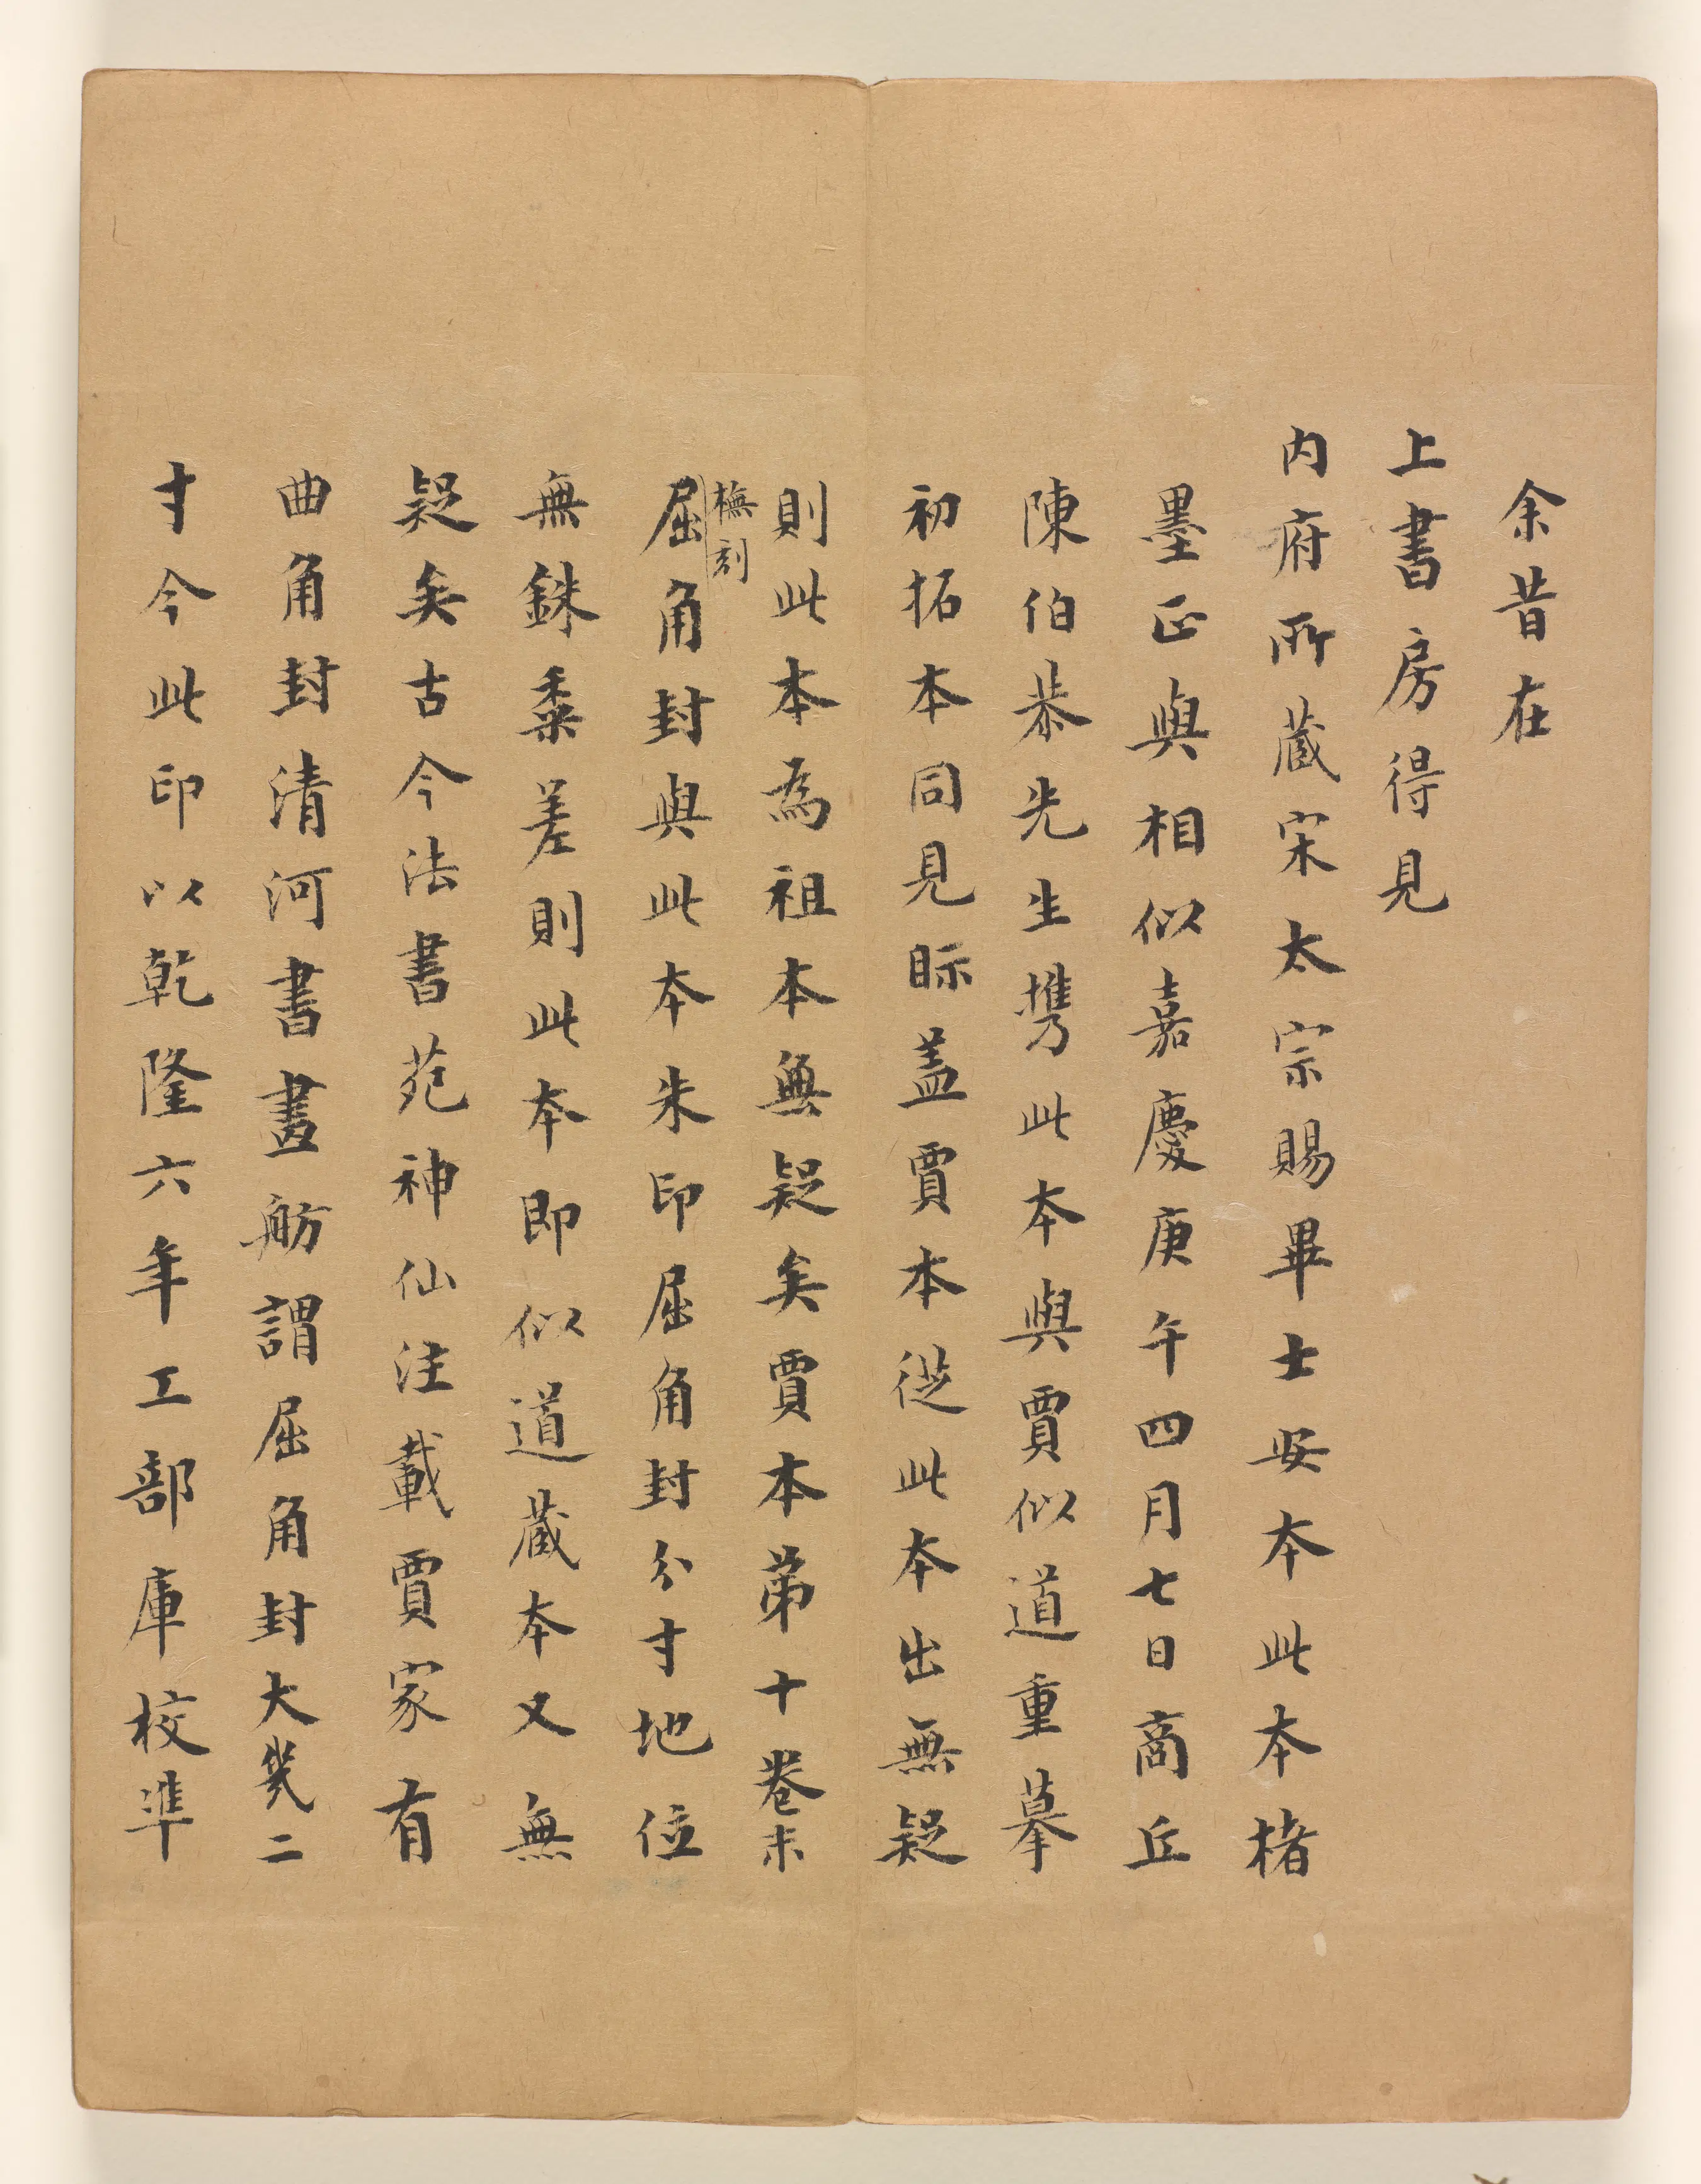 余昔在
上書房得見
内府所藏宋太宗賜畢士安本此本楮
墨正與相似嘉慶庚午四月七日商丘
陳伯恭先生攜此本與賈似道重摹
初拓本同見眎盖賈本從此本出無疑
則此本為祖本無疑矣賈本第十卷末
橅刻
屈角封與此本朱印屈角封分寸地位
無銖黍差則此本即似道藏本又無
疑矣古今法書苑神仙注載賈家有
曲角封清河書畫舫謂屈角封大幾二
寸今此印以乾隆六年工部庫校準